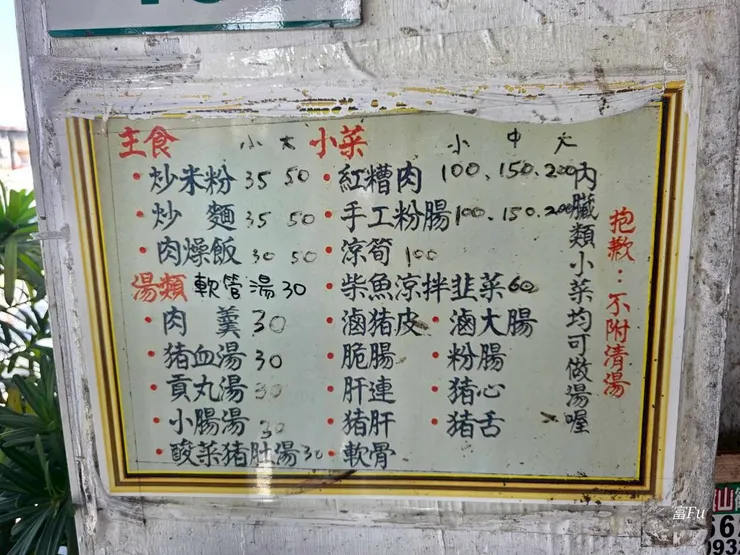 主食 小 大
炒米粉 35 50
炒麵 35 50
肉燥飯 30 50
湯類 軟管湯 30
肉羹 30
豬血湯 30
貢丸湯 30
小腸湯 30
酸菜豬肚湯 30
小菜 小 中 大
紅糟肉 100、150、200
手工粉腸 100、150、200
涼筍 100
柴魚涼拌韭菜 60
滷豬皮 • 滷大腸
脆腸 • 粉腸
肝連 • 豬心
豬肝 • 豬舌
軟骨
內臟類小菜均可做湯喔
抱歉：不附清湯
富Fu